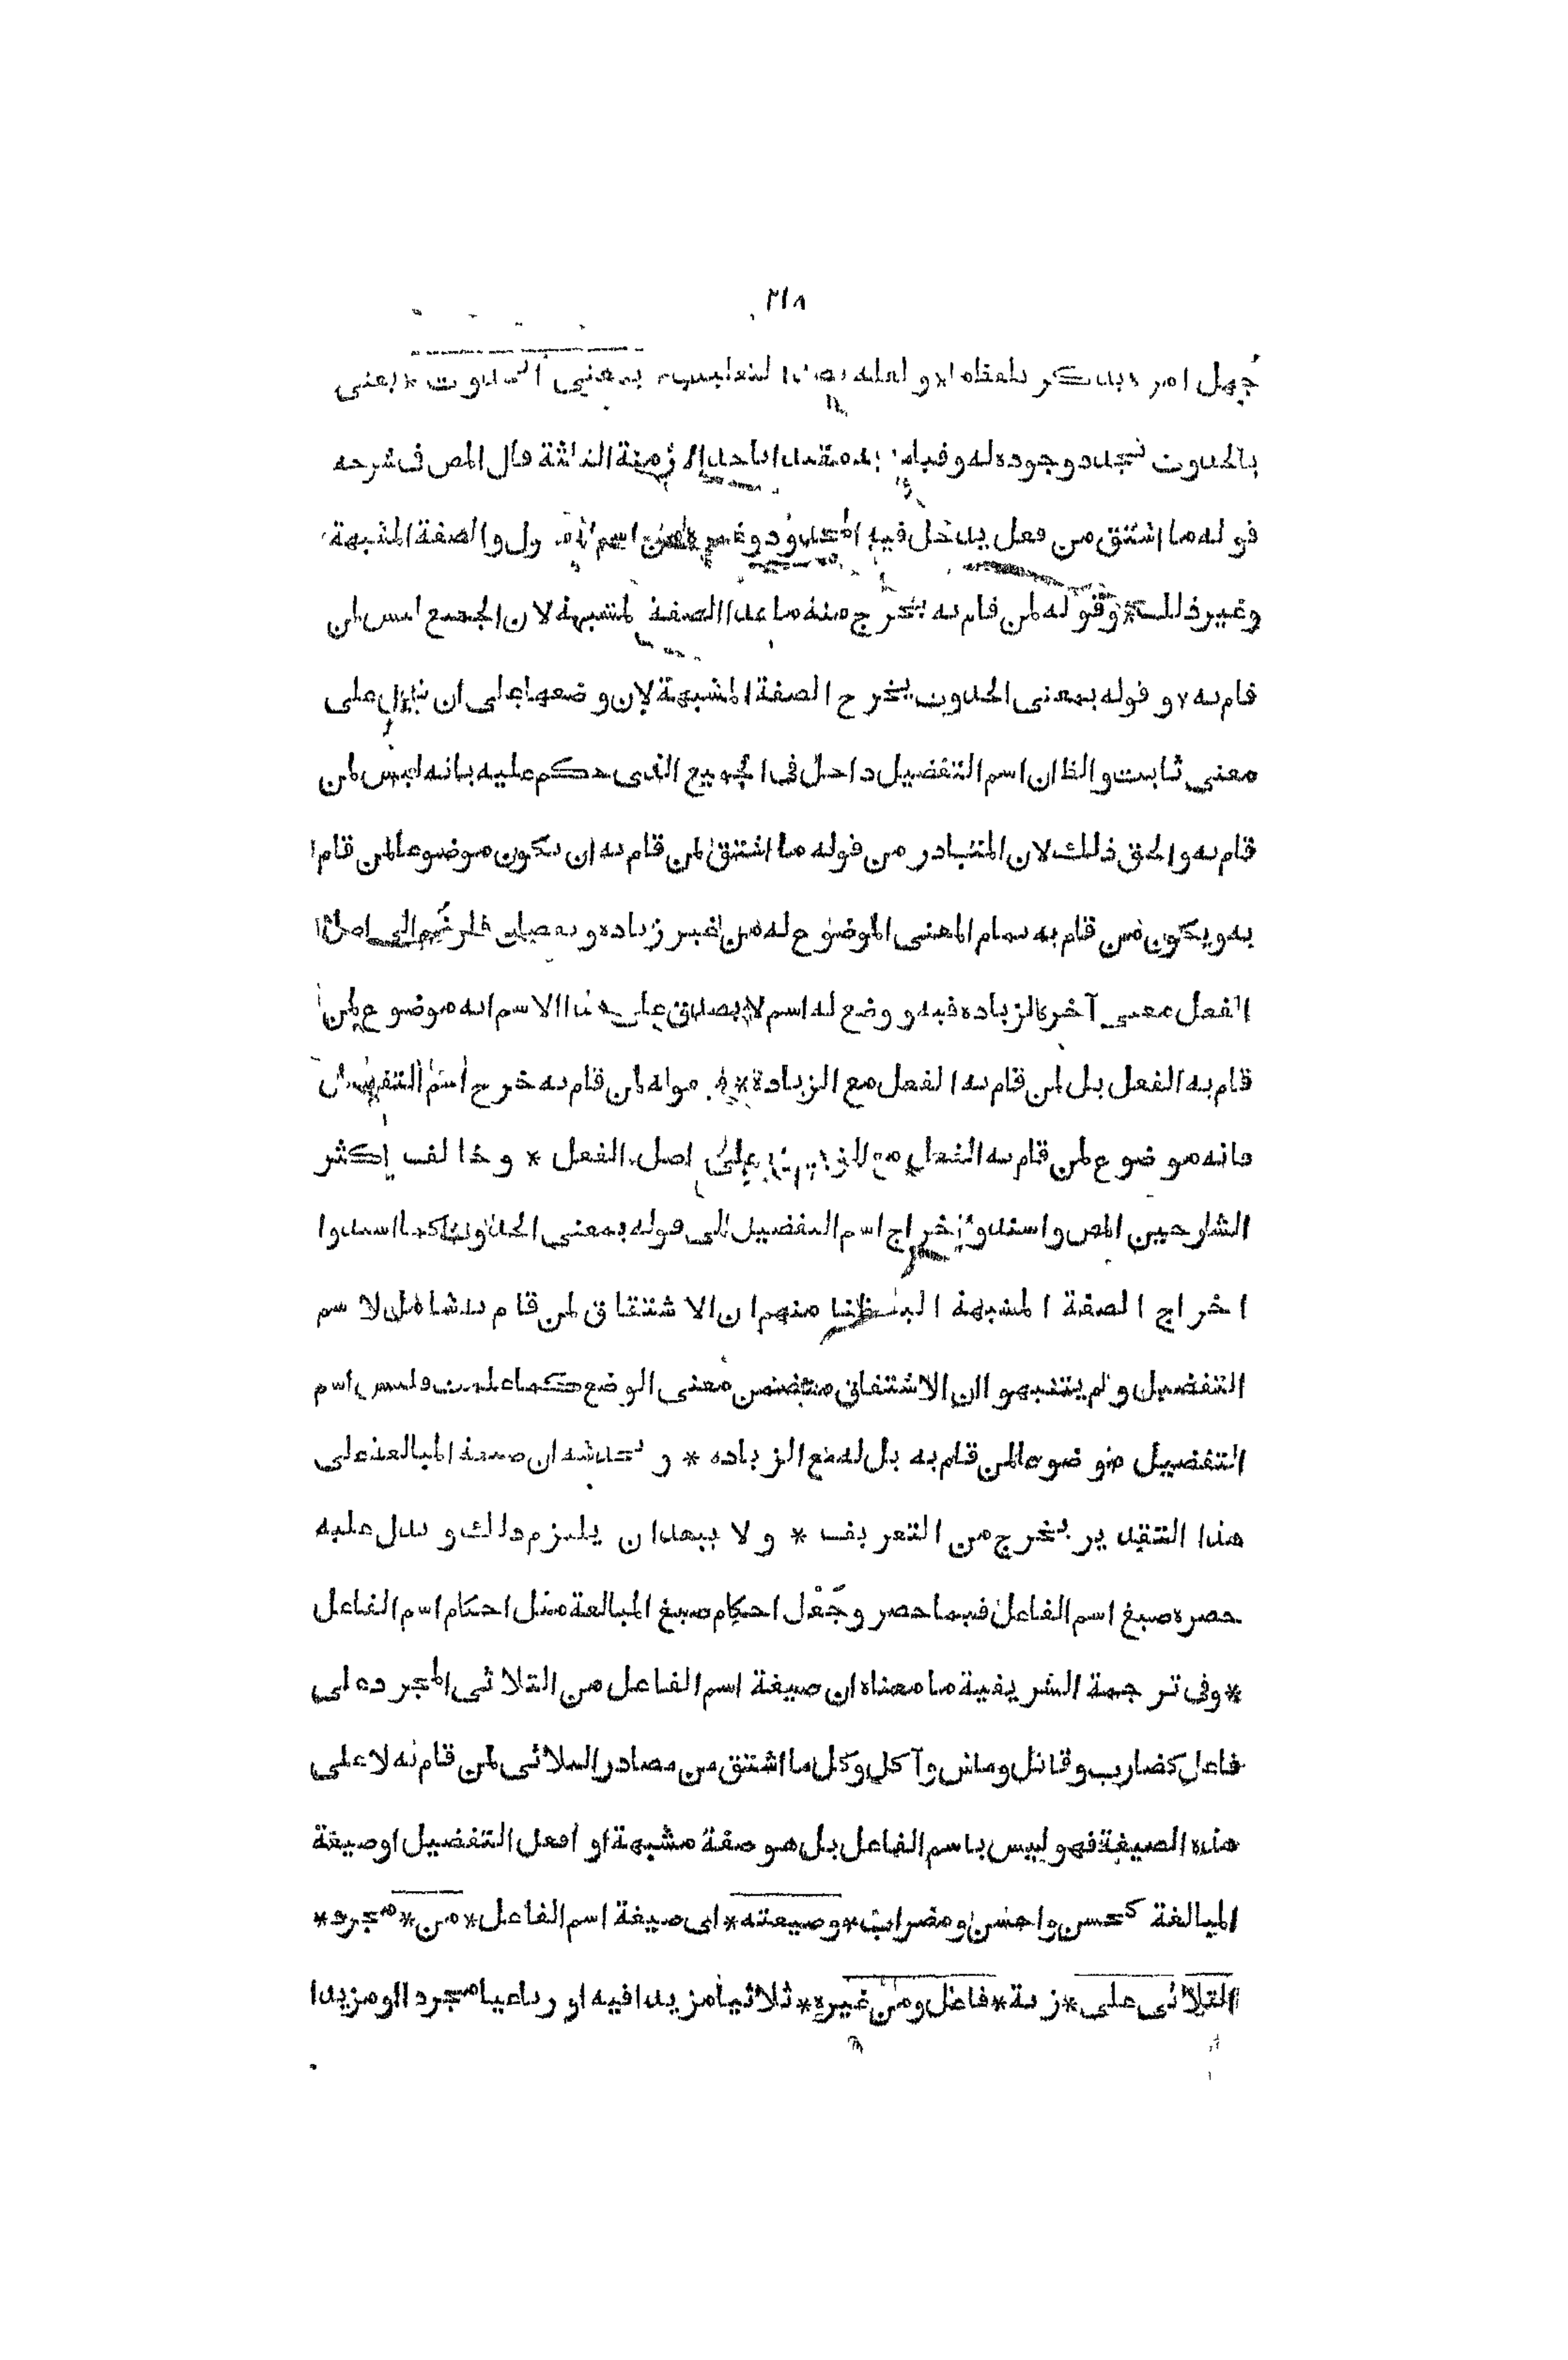 ٣١٨
جهل امره يذكر بلفظه ما و لعله قصد التغليب * بمعنى الحدوث * يعنى
بالحدوث تجدد وجوده له وقيامه به مقيدا باحد الازمنة الثلثة قال المص فى شرحه
قوله ما اشتق من فعل يدخل فيه المحدود وغيره من اسم المفعول والصفة المشبهة
وغير ذلك * وقوله لمن قام به يخرج منه ما عدا الصفة المشبهة لان الجميع ليس لمن
قام به و قوله بمعنى الحدوث يخرج الصفة المشبهة لان وضعها على ان تدل على
معنى ثابت والظ ان اسم التفضيل داخل فى الجميع الذى حكم عليه بانه ليس لمن
قام به والحق ذلك لان المتبادر من قوله ما اشتق لمن قام به ان يكون موضوعا لمن قام
به ويكون من قام به تمام المعنى الموضوع له من غير زيادة و نقصان فلو ضم الى اصل
الفعل معنى آخر كالزيادة فيه و وضع له اسم لا يصدق على هذا الاسم انه موضوع لمن
قام به الفعل بل لمن قام به الفعل مع الزيادة * فبقوله لمن قام به خرج اسم التفضيل
فانه موضوع لمن قام به الفعل مع الزيادة على اصل الفعل * و خالف اكثر
الشارحين المص واسندوا اخراج اسم التفضيل الى قوله بمعنى الحدوث كما اسندوا
اخراج الصفة المشبهة اليه ظنا منهم ان الاشتقاق لمن قام به شامل لاسم
التفضيل و لم يتنبهوا ان الاشتقاق متضمن معنى الوضع كما علمت وليس اسم
التفضيل موضوعا لمن قام به بل له مع الزيادة * و يخدشه ان صيغة المبالغة على
هذا التقدير يخرج من التعريف * و لا يبعد ان يلتزم ذلك و يدل عليه
حصره صيغ اسم الفاعل فيما حصر وجعل احكام صيغ المبالغة مثل احكام اسم الفاعل
* وفى ترجمة الشريفية ما معناه ان صيغة اسم الفاعل من الثلاثى المجرد على
فاعل كضارب وقاتل وماش وآكل وكل ما اشتق من مصادر الثلاثى لمن قام به لا على
هذه الصيغة فهو ليس باسم الفاعل بل هو صفة مشبهة او افعل التفضيل او صيغة
المبالغة كحسن واحسن ومضراب * وصيغته * اى صيغة اسم الفاعل * من * مجرد *
الثلاثى على * زنة * فاعل ومن غيره * ثلاثيا مزيدا فيه او رباعيا مجردا او مزيدا